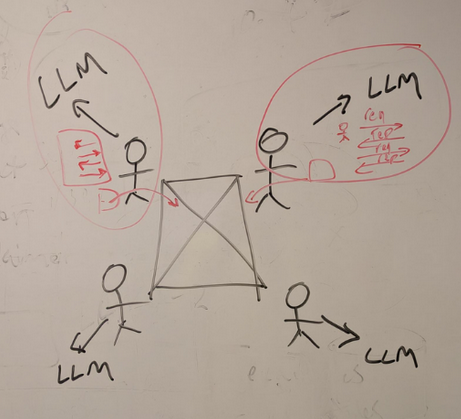 LLM
LLM
req
rsp
req
rsp
LLM
LLM